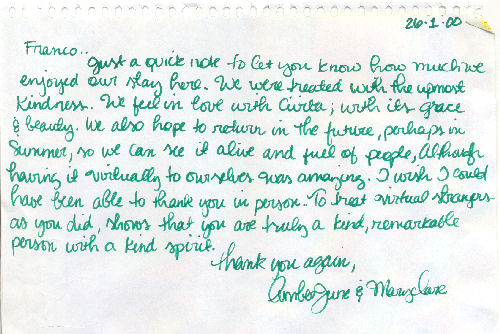 26-1-00
Franco..
Just a quick note to let you know how much we
enjoyed our stay here. We were treated with the upmost
kindness. We fell in love with Civita; with its grace
& beauty. We also hope to return in the future, perhaps in
Summer, so we can see it alive and full of people, Although
having it virtually to ourselves was amazing. I wish I could
have been able to thank you in person.. To treat virtual strangers
as you did, shows that you are truly a kind, remarkable
person with a kind spirit.
Thank you again,
Amber June &